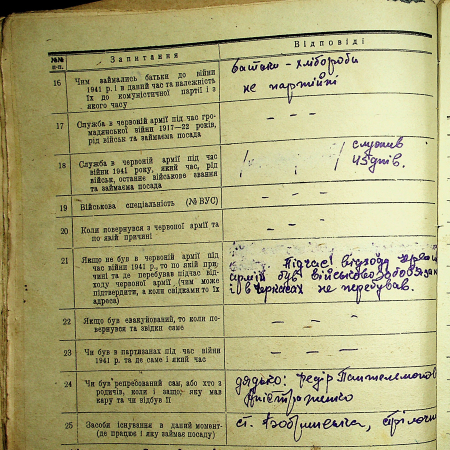 №№ п-п.
Запитання
Відповіді
16
Чим займались батьки до війни
1941 р. і в даний час та належність
їх до комуністичної партії і з
якого часу
батьки - хлібороби
не партійні
17
Служба в червоній армії під час гро-
мадянської війни 1917—22 років,
рід військ та займаєма посада
— — —
18
Служба в червоній армії під час
війни 1941 року, який час, рід
військ, останнє військове звання
та займаєма посада
служив
45 днів.
19
Військова спеціальність (№ ВУС)
— — —
20
Коли повернувся з червоної армії та
по якій причині
— —
21
Якщо не був в червоній армії під
час війни 1941 р., то по якій при-
чині та де перебував підчас від-
ходу червоної армії (чим може
підтвердити, а коли свідками то їх
адреса)
Підчас відходу
армій був військовозобов'язан
і в Черкасах не перебував.
22
Якщо був евакуйований, то коли по-
вернувся та звідки саме
— — —
23
Чи був в партизанах під час війни
1941 р. та де саме і який час
— — —
24
Чи був репресований сам, або хто з
родичів, коли і защо, яку мав
кару та чи відбув її
дядько: Федір Пантелемонов
25
Засоби існування в даний момент
(де працює і яку займає посаду)
ст. Бобринська,